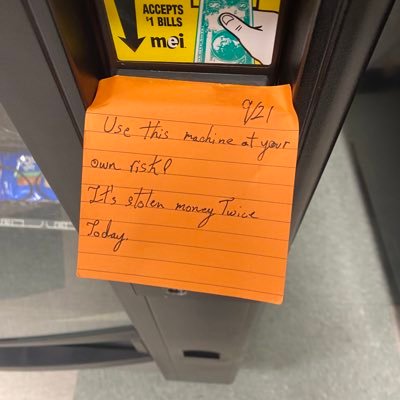 ACCEPTS
$1 BILLS
mei
9/21
Use this machine at your
own risk!
It's stolen money Twice
Today.